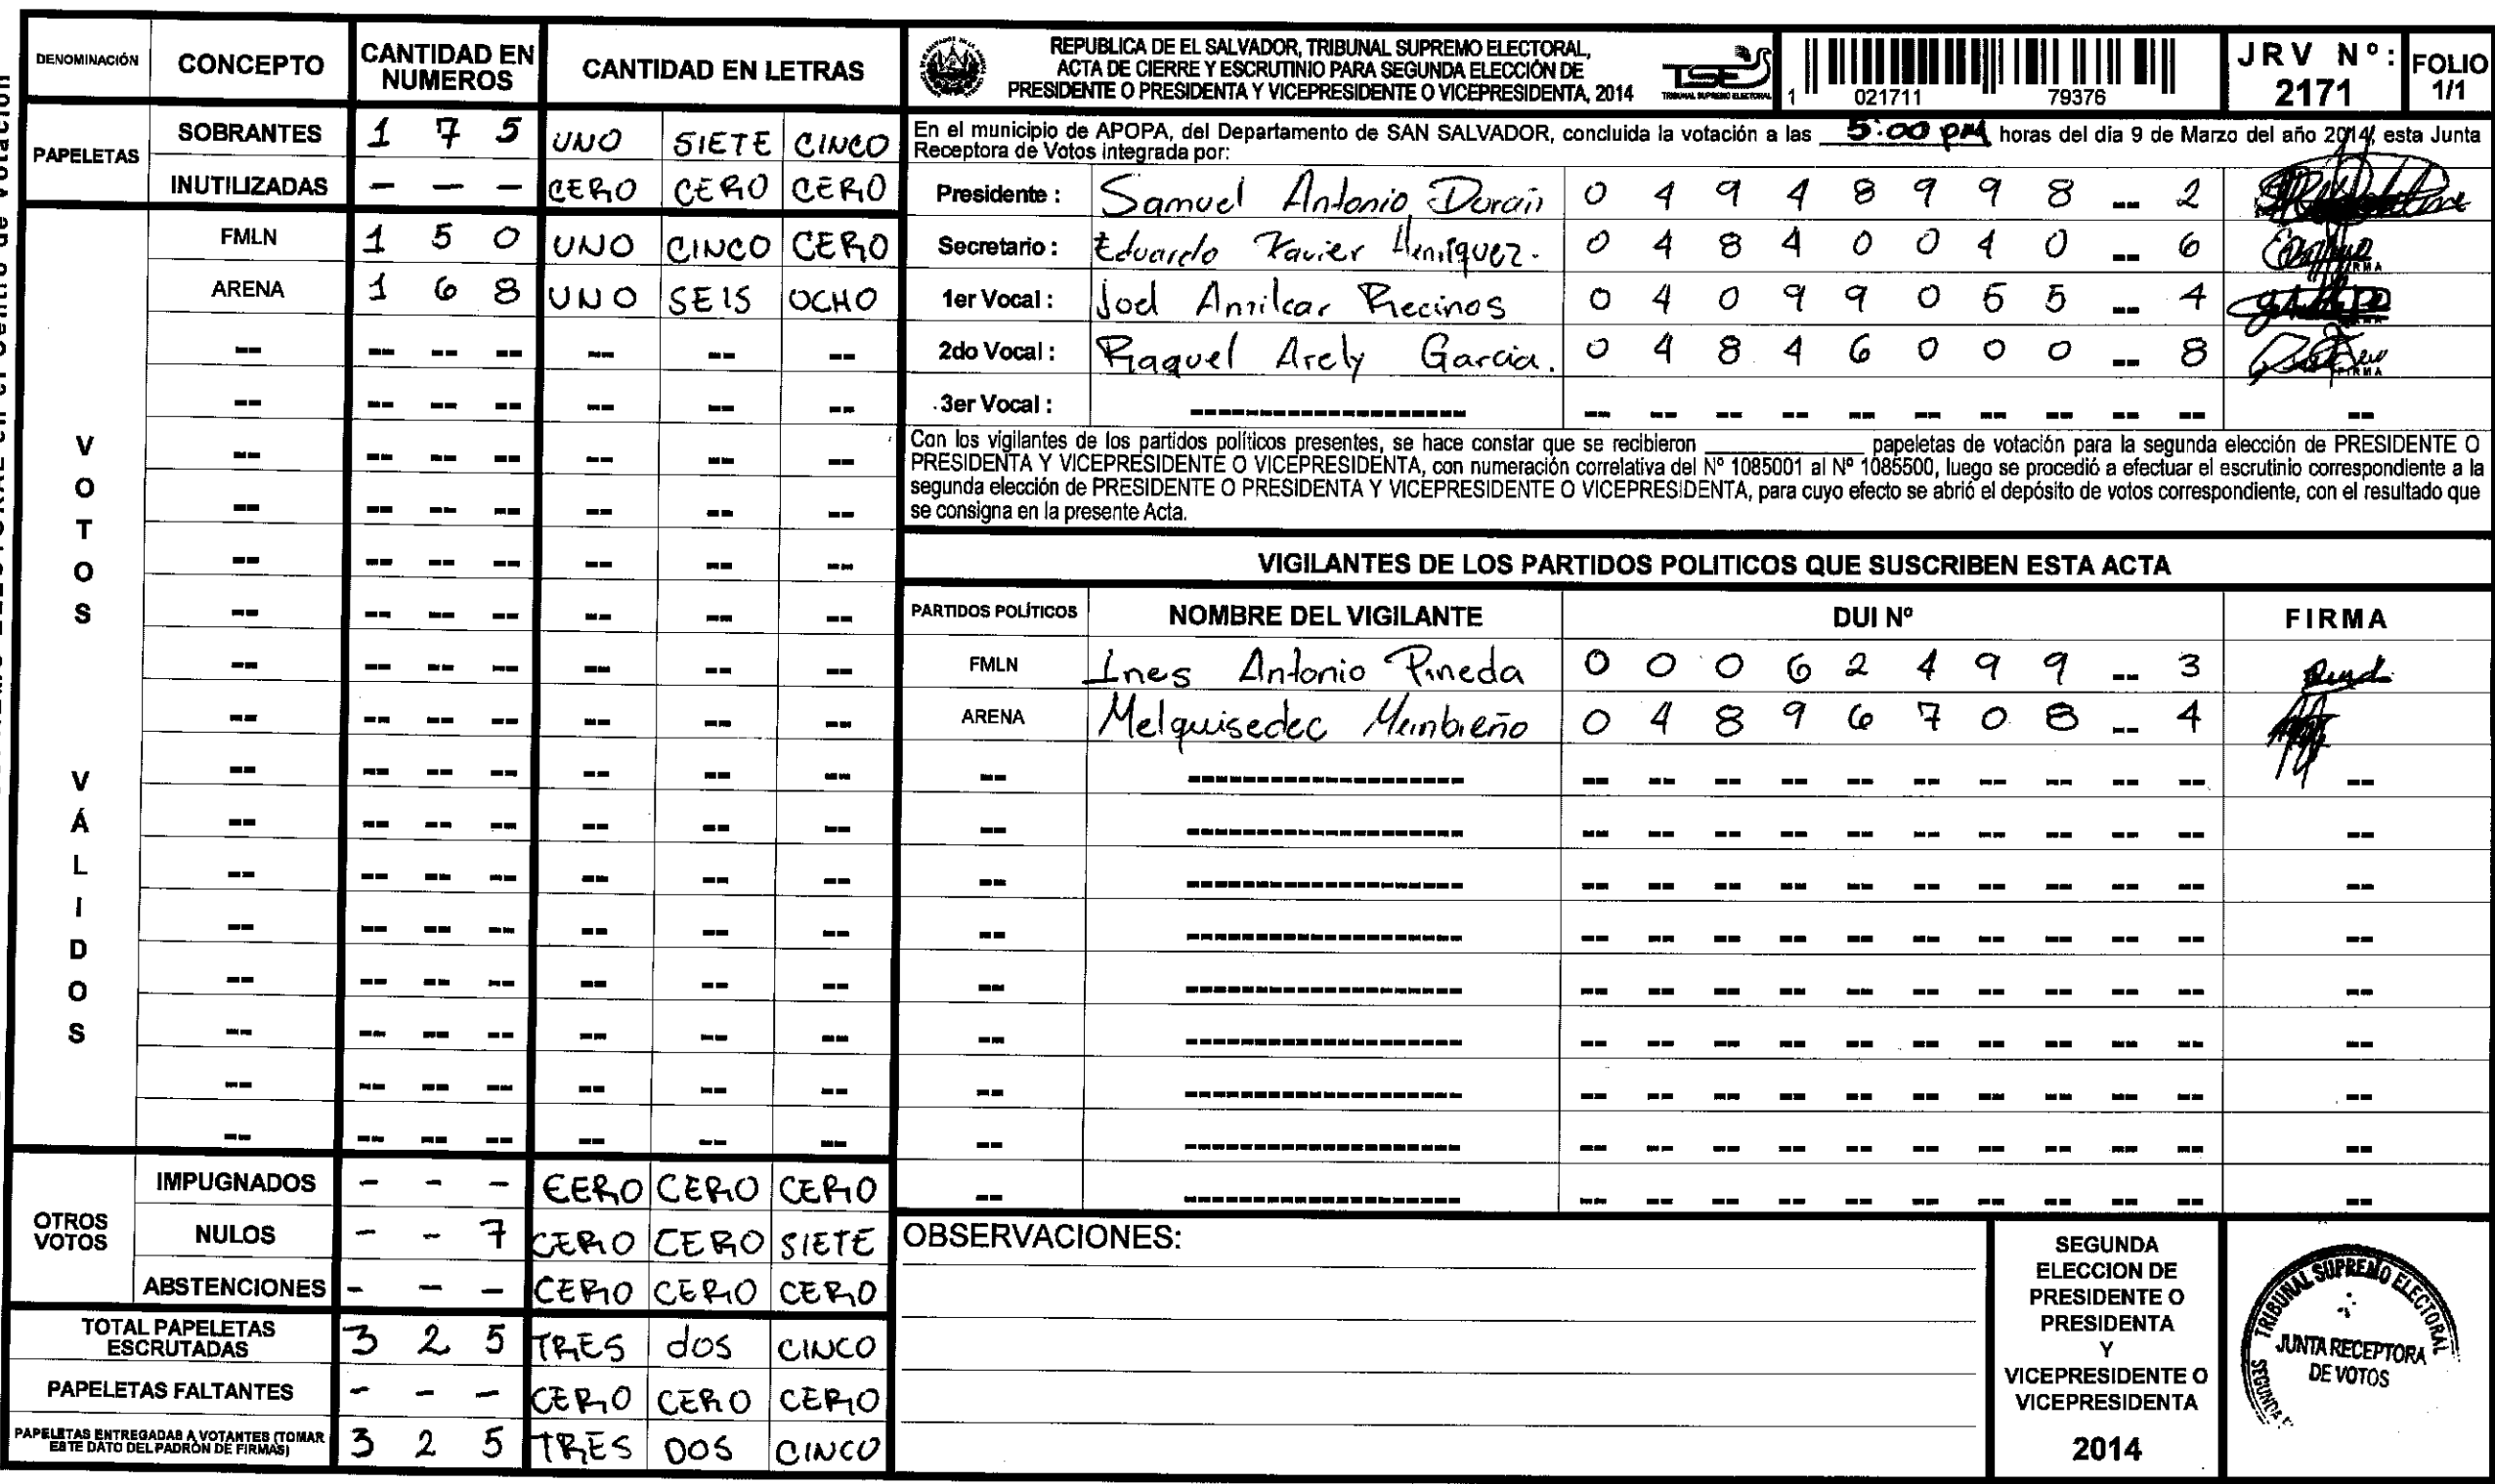 DENOMINACIÓN CONCEPTO CANTIDAD EN NUMEROS CANTIDAD EN LETRAS
PAPELETAS
SOBRANTES 1 7 5 UNO SIETE CINCO
INUTILIZADAS - - - CERO CERO CERO
VOTOS VÁLIDOS
FMLN 1 5 0 UNO CINCO CERO
ARENA 1 6 8 UNO SEIS OCHO
OTROS VOTOS
IMPUGNADOS - - - CERO CERO CERO
NULOS - - 7 CERO CERO SIETE
ABSTENCIONES - - - CERO CERO CERO
TOTAL PAPELETAS ESCRUTADAS 3 2 5 TRES dos CINCO
PAPELETAS FALTANTES - - - CERO CERO CERO
PAPELETAS ENTREGADAS A VOTANTES (TOMAR ESTE DATO DEL PADRÓN DE FIRMAS) 3 2 5 TRES DOS CINCO
REPUBLICA DE EL SALVADOR, TRIBUNAL SUPREMO ELECTORAL,
ACTA DE CIERRE Y ESCRUTINIO PARA SEGUNDA ELECCIÓN DE
PRESIDENTE O PRESIDENTA Y VICEPRESIDENTE O VICEPRESIDENTA, 2014
TSE
TRIBUNAL SUPREMO ELECTORAL
1 021711 79376
JRV Nº: 2171
FOLIO 1/1
En el municipio de APOPA, del Departamento de SAN SALVADOR, concluida la votación a las 5:00 pm horas del dia 9 de Marzo del año 2014, esta Junta
Receptora de Votos integrada por:
Presidente : Samuel Antonio Duran 0 4 9 4 8 9 9 8 -- 2
Secretario : Eduardo Xavier Henriquez. 0 4 8 4 0 0 4 0 -- 6
1er Vocal : Joel Amilcar Recinos 0 4 0 9 9 0 5 5 -- 4
2do Vocal : Raquel Arely Garcia. 0 4 8 4 6 0 0 0 -- 8
3er Vocal :
Con los vigilantes de los partidos políticos presentes, se hace constar que se recibieron ________ papeletas de votación para la segunda elección de PRESIDENTE O
PRESIDENTA Y VICEPRESIDENTE O VICEPRESIDENTA, con numeración correlativa del Nº 1085001 al Nº 1085500, luego se procedió a efectuar el escrutinio correspondiente a la
segunda elección de PRESIDENTE O PRESIDENTA Y VICEPRESIDENTE O VICEPRESIDENTA, para cuyo efecto se abrió el depósito de votos correspondiente, con el resultado que
se consigna en la presente Acta.
VIGILANTES DE LOS PARTIDOS POLITICOS QUE SUSCRIBEN ESTA ACTA
PARTIDOS POLÍTICOS NOMBRE DEL VIGILANTE DUI Nº FIRMA
FMLN Ines Antonio Pineda 0 0 0 6 2 4 9 9 -- 3
ARENA Melquisedec 0 4 8 9 6 7 0 8 -- 4
OBSERVACIONES:
SEGUNDA
ELECCION DE
PRESIDENTE O
PRESIDENTA
Y
VICEPRESIDENTE O
VICEPRESIDENTA
2014
TRIBUNAL SUPREMO ELECTORAL
JUNTA RECEPTORA
DE VOTOS
SEGUNDA